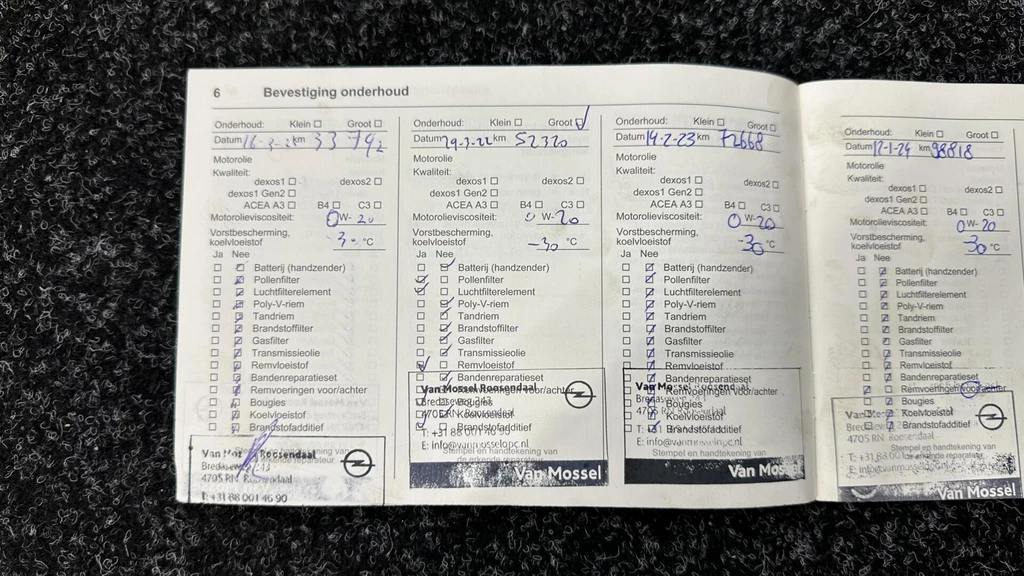 6 Bevestiging onderhoud
Onderhoud: Klein ☐ Groot ☐
Datum km
Motorolie
Kwaliteit:
dexos1 ☐ dexos2 ☐
dexos1 Gen2 ☐
ACEA A3 ☐ B4 ☐ C3 ☐
Motorolieviscositeit: 0 W- 20
Vorstbescherming,
koelvloeistof °C
Ja Nee
Batterij (handzender)
Pollenfilter
Luchtfilterelement
Poly-V-riem
Tandriem
Brandstoffilter
Gasfilter
Transmissieolie
Remvloeistof
Bandenreparatieset
Remvoeringen voor/achter
Bougies
Koelvloeistof
Brandstofadditief
Roosendaal
4705 RN Roosendaal
T: +31 88 001 46 90
Onderhoud: Klein ☐ Groot ☑
Datum 29-3-22 km 52320
Motorolie
Kwaliteit:
dexos1 ☐ dexos2 ☐
dexos1 Gen2 ☐
ACEA A3 ☐ B4 ☐ C3 ☐
Motorolieviscositeit: 0 W- 20
Vorstbescherming,
koelvloeistof -30 °C
Ja Nee
Batterij (handzender)
Pollenfilter
Luchtfilterelement
Poly-V-riem
Tandriem
Brandstoffilter
Gasfilter
Transmissieolie
Remvloeistof
Bandenreparatieset
Remvoeringen voor/achter
Bougies
Koelvloeistof
Brandstofadditief
Van Mossel Roosendaal
4705 RN Roosendaal
E: info@vanmosselopc.nl
Stempel en handtekening van
de erkende reparateur
Van Mossel
Onderhoud: Klein ☐ Groot ☐
Datum 14-2-23 km 72668
Motorolie
Kwaliteit:
dexos1 ☐ dexos2 ☐
dexos1 Gen2 ☐
ACEA A3 ☐ B4 ☐ C3 ☐
Motorolieviscositeit: 0 W- 20
Vorstbescherming,
koelvloeistof -30 °C
Ja Nee
Batterij (handzender)
Pollenfilter
Luchtfilterelement
Poly-V-riem
Tandriem
Brandstoffilter
Gasfilter
Transmissieolie
Remvloeistof
Bandenreparatieset
Remvoeringen voor/achter
Bougies
Koelvloeistof
Brandstofadditief
Van Mossel Roosendaal
E: info@vanmosselopc.nl
Stempel en handtekening van
Van Mossel
Onderhoud: Klein ☐ Groot ☐
Datum 12-1-24 km 98818
Motorolie
Kwaliteit:
dexos1 ☐ dexos2 ☐
dexos1 Gen2 ☐
ACEA A3 ☐ B4 ☐ C3 ☐
Motorolieviscositeit: 0 W- 20
Vorstbescherming,
koelvloeistof -30 °C
Ja Nee
Batterij (handzender)
Pollenfilter
Luchtfilterelement
Poly-V-riem
Tandriem
Brandstoffilter
Gasfilter
Transmissieolie
Remvloeistof
Bandenreparatieset
Remvoeringen voor/achter
Bougies
Koelvloeistof
Brandstofadditief
4705 RN Roosendaal
Van Mossel